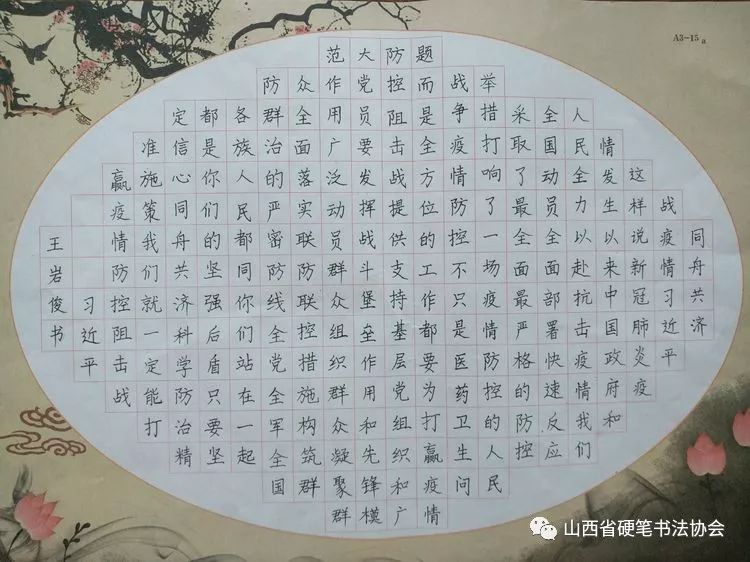 同舟共济
战疫情习近平
这样说新冠肺炎疫
情发生以来中国政府和
人民全力以赴抗击疫情我们
全国动员全面部署快速反应
采取了最全面最严格的防控
举措打响了一场疫情防控的人民
战争疫情防控不只是医药卫生问
题而是全方位的工作都要为打赢疫情
防控阻击战提供支持基层党组织和广
大党员要发挥战斗堡垒作用和先锋模
范作用广泛动员群众组织群众凝聚群
众全面落实联防联控措施构筑群
防群治的严密防线全党全军全国
各族人民都同你们站在一起
都是你们的坚强后盾只要坚
定信心同舟共济科学防治精
准施策我们就一定能打
赢疫情防控阻击战
习近平
王岩俊书
A3-15a
山西省硬笔书法协会